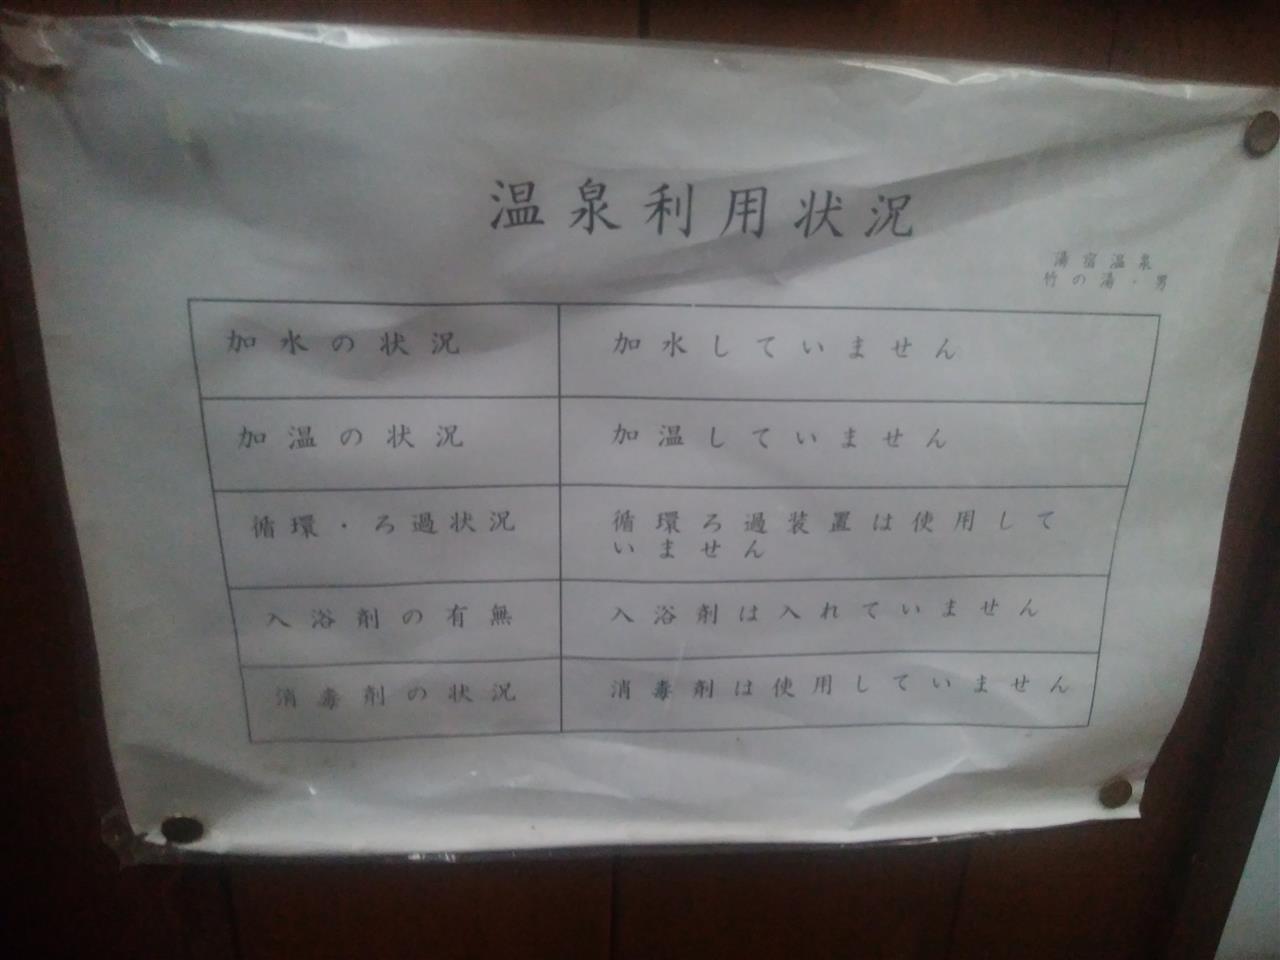 温泉利用状況
湯宿温泉
竹の湯・男
加水の状況
加水していません
加温の状況
加温していません
循環・ろ過状況
循環ろ過装置は使用して
いません
入浴剤の有無
入浴剤は入れていません
消毒剤の状況
消毒剤は使用していません